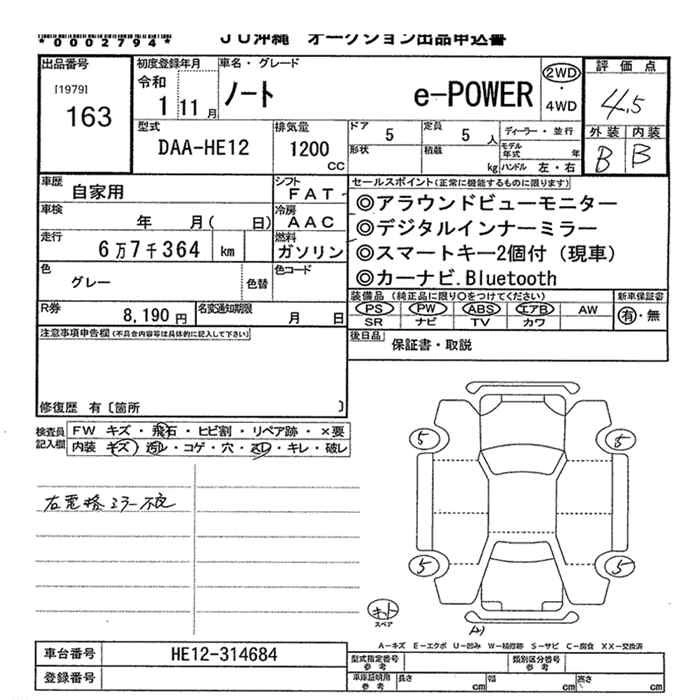 *0002794*
JU沖縄 オークション出品申込書
出品番号 初度登録年月 車名・グレード 評価点
[1979] 163 令和 1 11月 ノート e-POWER 2WD・4WD 4.5
型式 DAA-HE12 排気量 1200 CC
ドア 5 定員 5 人 ディーラー・並行
形状 積載 kg モデル年式 年 ハンドル 左・右
外装 内装
B B
車歴 自家用 シフト FAT
車検 年 月( 日) 冷房 AAC
走行 6万7千364 km 燃料 ガソリン
色 グレー 色替 色コード
R券 8,190円 名変通知期限 月 日
セールスポイント(正常に機能するものに限ります)
◎アラウンドビューモニター
◎デジタルインナーミラー
◎スマートキー2個付(現車)
◎カーナビ.Bluetooth
装備品 (純正品に限り○をつけてください) 新車保証書
PS PW ABS エアB AW 有・無
SR ナビ TV カワ
後日品 保証書・取説
注意事項申告欄(不具合内容等は具体的に記入して下さい)
修復歴 有〔箇所 〕
検査員記入欄 FW キズ・飛石・ヒビ割・リペア跡・×要
内装 キズ・汚レ・コゲ・穴・スレ・キレ・破レ
右電格ミラー不良
5 5
5 5
キット
スペア
A1
A-キズ E-エクボ U-凹み W-補修跡 S-サビ C-腐食 XX-交換済
車台番号 HE12-314684
登録番号
型式指定番号 参考 類別区分番号 参考
車庫証明用 参考 長さ cm 幅 cm 高さ cm